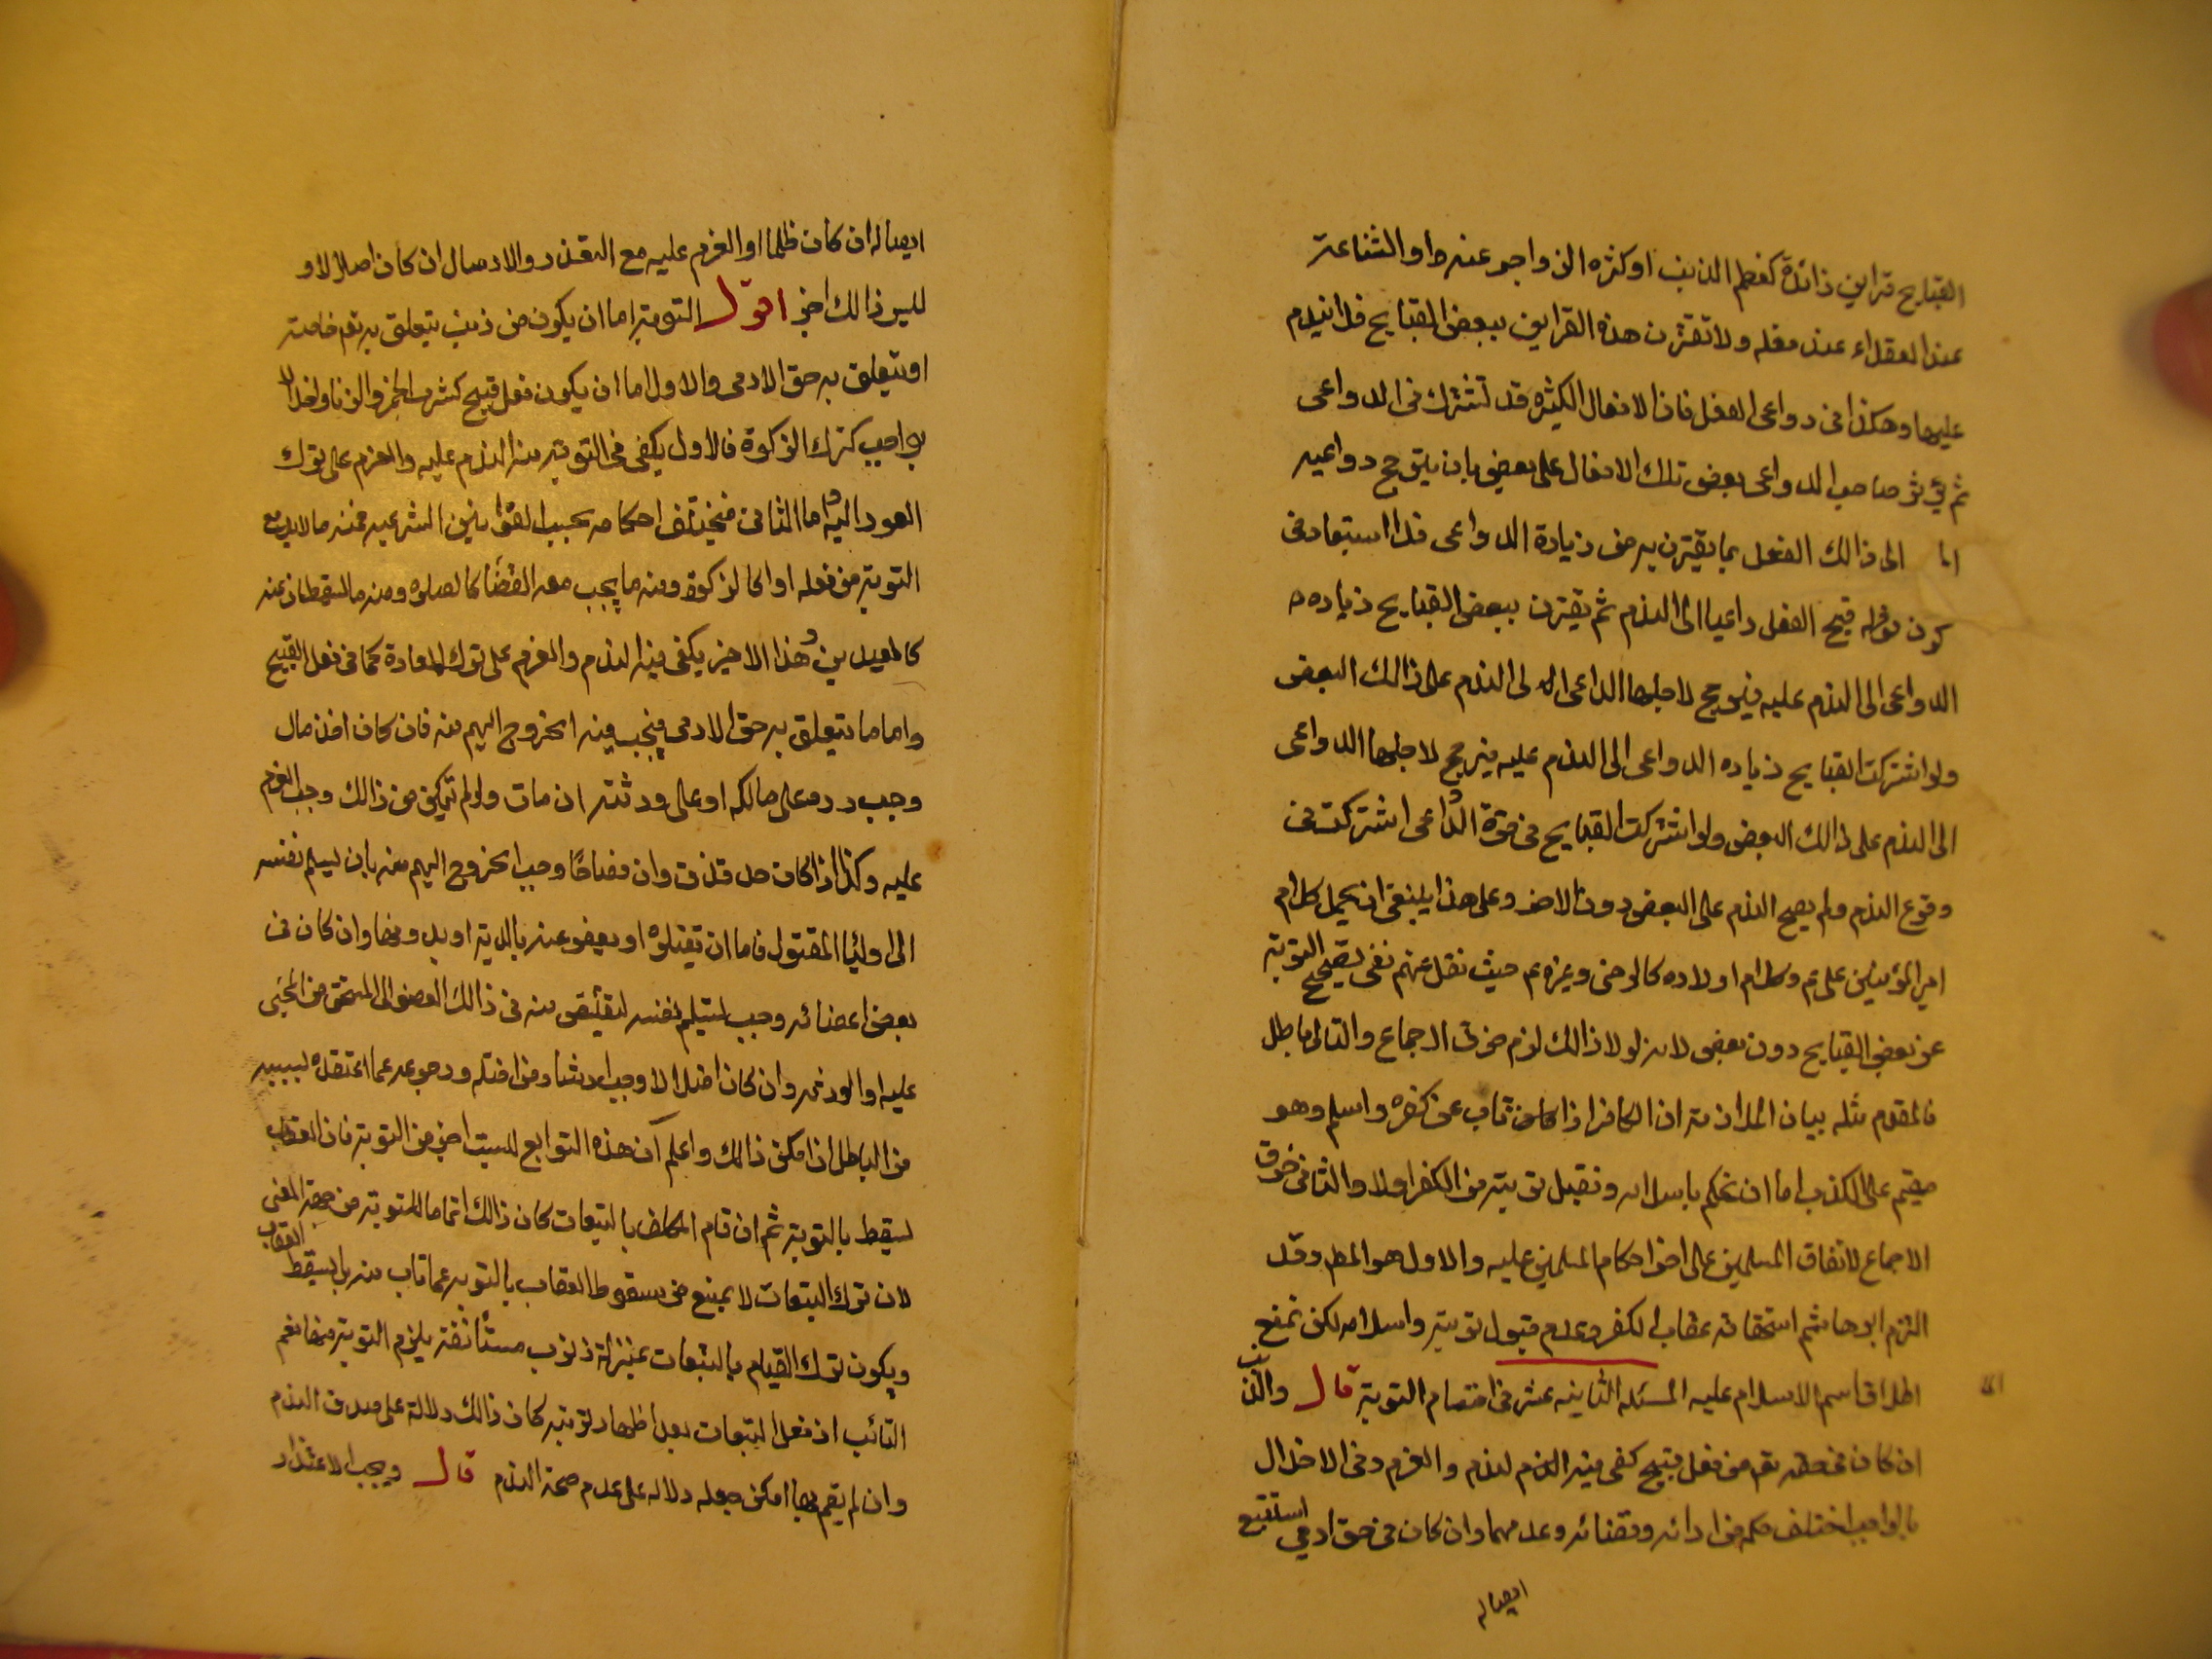 القبايح قراين زائدة كعظم الذنب او كثره الزواجر عنه او الشناعة
عند العقلاء عند فعله ولا تقترن هذه القراين ببعض القبايح فلا يندم
عليها وهكذا فى دواعى الفعل فان الافعال الكثيره قد تشترك فى الدواعى
ثم يؤثر صاحب الدواعى بعض تلك الافعال على بعض بان يترجح دواعيه
الى ذالك الفعل بما يقترن به من زيادة الدواعى فلا استبعاد فى
كون قبح الفعل داعيا الى الندم ثم يقترن ببعض القبايح زياده
الدواعى الى الندم عليه فيرجح لاجلها الداعى الى الندم على ذالك البعض
ولو اشتركت القبايح زياده الدواعى الى الندم عليه فيرجح لاجلها الدواعى
الى الندم على ذالك البعض ولو اشتركت القبايح فى قوة الدواعى اشتركت فى
وقوع الندم ولم يصح الندم على البعض دون الاخر وعلى هذا ينبغى ان يحمل كلام
امير المؤمنين على ع وكلام اولاده كالرضى وغيره ع حيث نقل عنهم نفى تصحيح التوبة
عن بعض القبايح دون بعض لانه لولا ذالك لزم خرق الاجماع والتالى باطل
فالمقدم مثله بيان الملازمة ان الكافر اذا كان تاب عن كفره واسلم وهو
مقيم على الكذب اما ان نحكم باسلامه ونقبل توبته من الكفر اولا والثانى خرق
الاجماع لاتفاق المسلمين على اجرا احكام المسلمين عليه والاول هو المط وقد
التزم ابو هاشم استحقاقه عقاب الكفر وعدم قبول توبته واسلامه لكن نمنع
اطلاق اسم الاسلام عليه المسئله الثانيه عشر فى اقسام التوبة قال والذنب
ان كان فى حقه تع من فعل قبيح كفى فيه الندم والعزم وفى الاخلال
بالواجب اختلف حكمه فى ادائه وقضائه وعدمهما وان كان فى حق ادمي استتبع
ايصاله
ايصاله ان كان ظلما او العزم عليه مع التعذر والارسال ان كان اضلالا و
ليس ذالك اجزا اقول التوبة اما ان يكون من ذنب يتعلق به تع خاصة
او يتعلق به حق الادمى والاول اما ان يكون فعل قبيح كشرب الخمر والزنا او اخلال
بواجب كترك الزكوة فالاول يكفى فى التوبة منه الندم عليه والعزم على ترك
العود اليه واما الثانى فيختلف احكامه بحسب القوانين الشرعيه فمنه ما لا بد مع
التوبة من فعله اداء كالزكوة ومنه ما يجب معه القضا كالصلوه ومنه ما يسقطان عنه
كالعيدين وهذا الاخير يكفى فيه الندم والعزم على ترك المعادة كما فى فعل القبيح
واما ما يتعلق به حق الادمى فيجب فيه الخروج اليهم منه فان كان اخذ مال
وجب رده على مالكه او على ورثته ان مات ولو لم يتمكن من ذالك وجب العزم
عليه وكذا اذا كان حد قذف وان قصاصا وجب الخروج اليهم منه بان يسلم نفسه
الى اولياء المقتول فاما ان يقتلوه او يعفو عنه بالدية او بدونها وان كان فى
بعض اعضائه وجب تسليم نفسه ليقتص منه فى ذالك العضو الى المستحق من المجنى
عليه او الورثه وان كان اضلالا وجب ارشاد من اضله ورجوعه عما اعتقده بسببه
من الباطل ان امكن ذالك واعلم ان هذه التوابع ليست اجزا من التوبة فان العقاب
يسقط بالتوبة ثم ان قام المكلف بالتبعات كان ذالك اتماما للتوبة من جهة المعنى
لان ترك التبعات لا يمنع من سقوط العقاب بالتوبه عما تاب منه بل يسقط العقاب
ويكون ترك القيام بالتبعات بمنزلة ذنوب مستأنفة يلزم التوبة منها نعم
التائب اذ فعل التبعات بعد اظهار توبته كان ذالك دلالة على صدق الندم
وان لم يقم بها امكن جعله دلاله على عدم صحة الندم قال ويجب الاعتذار